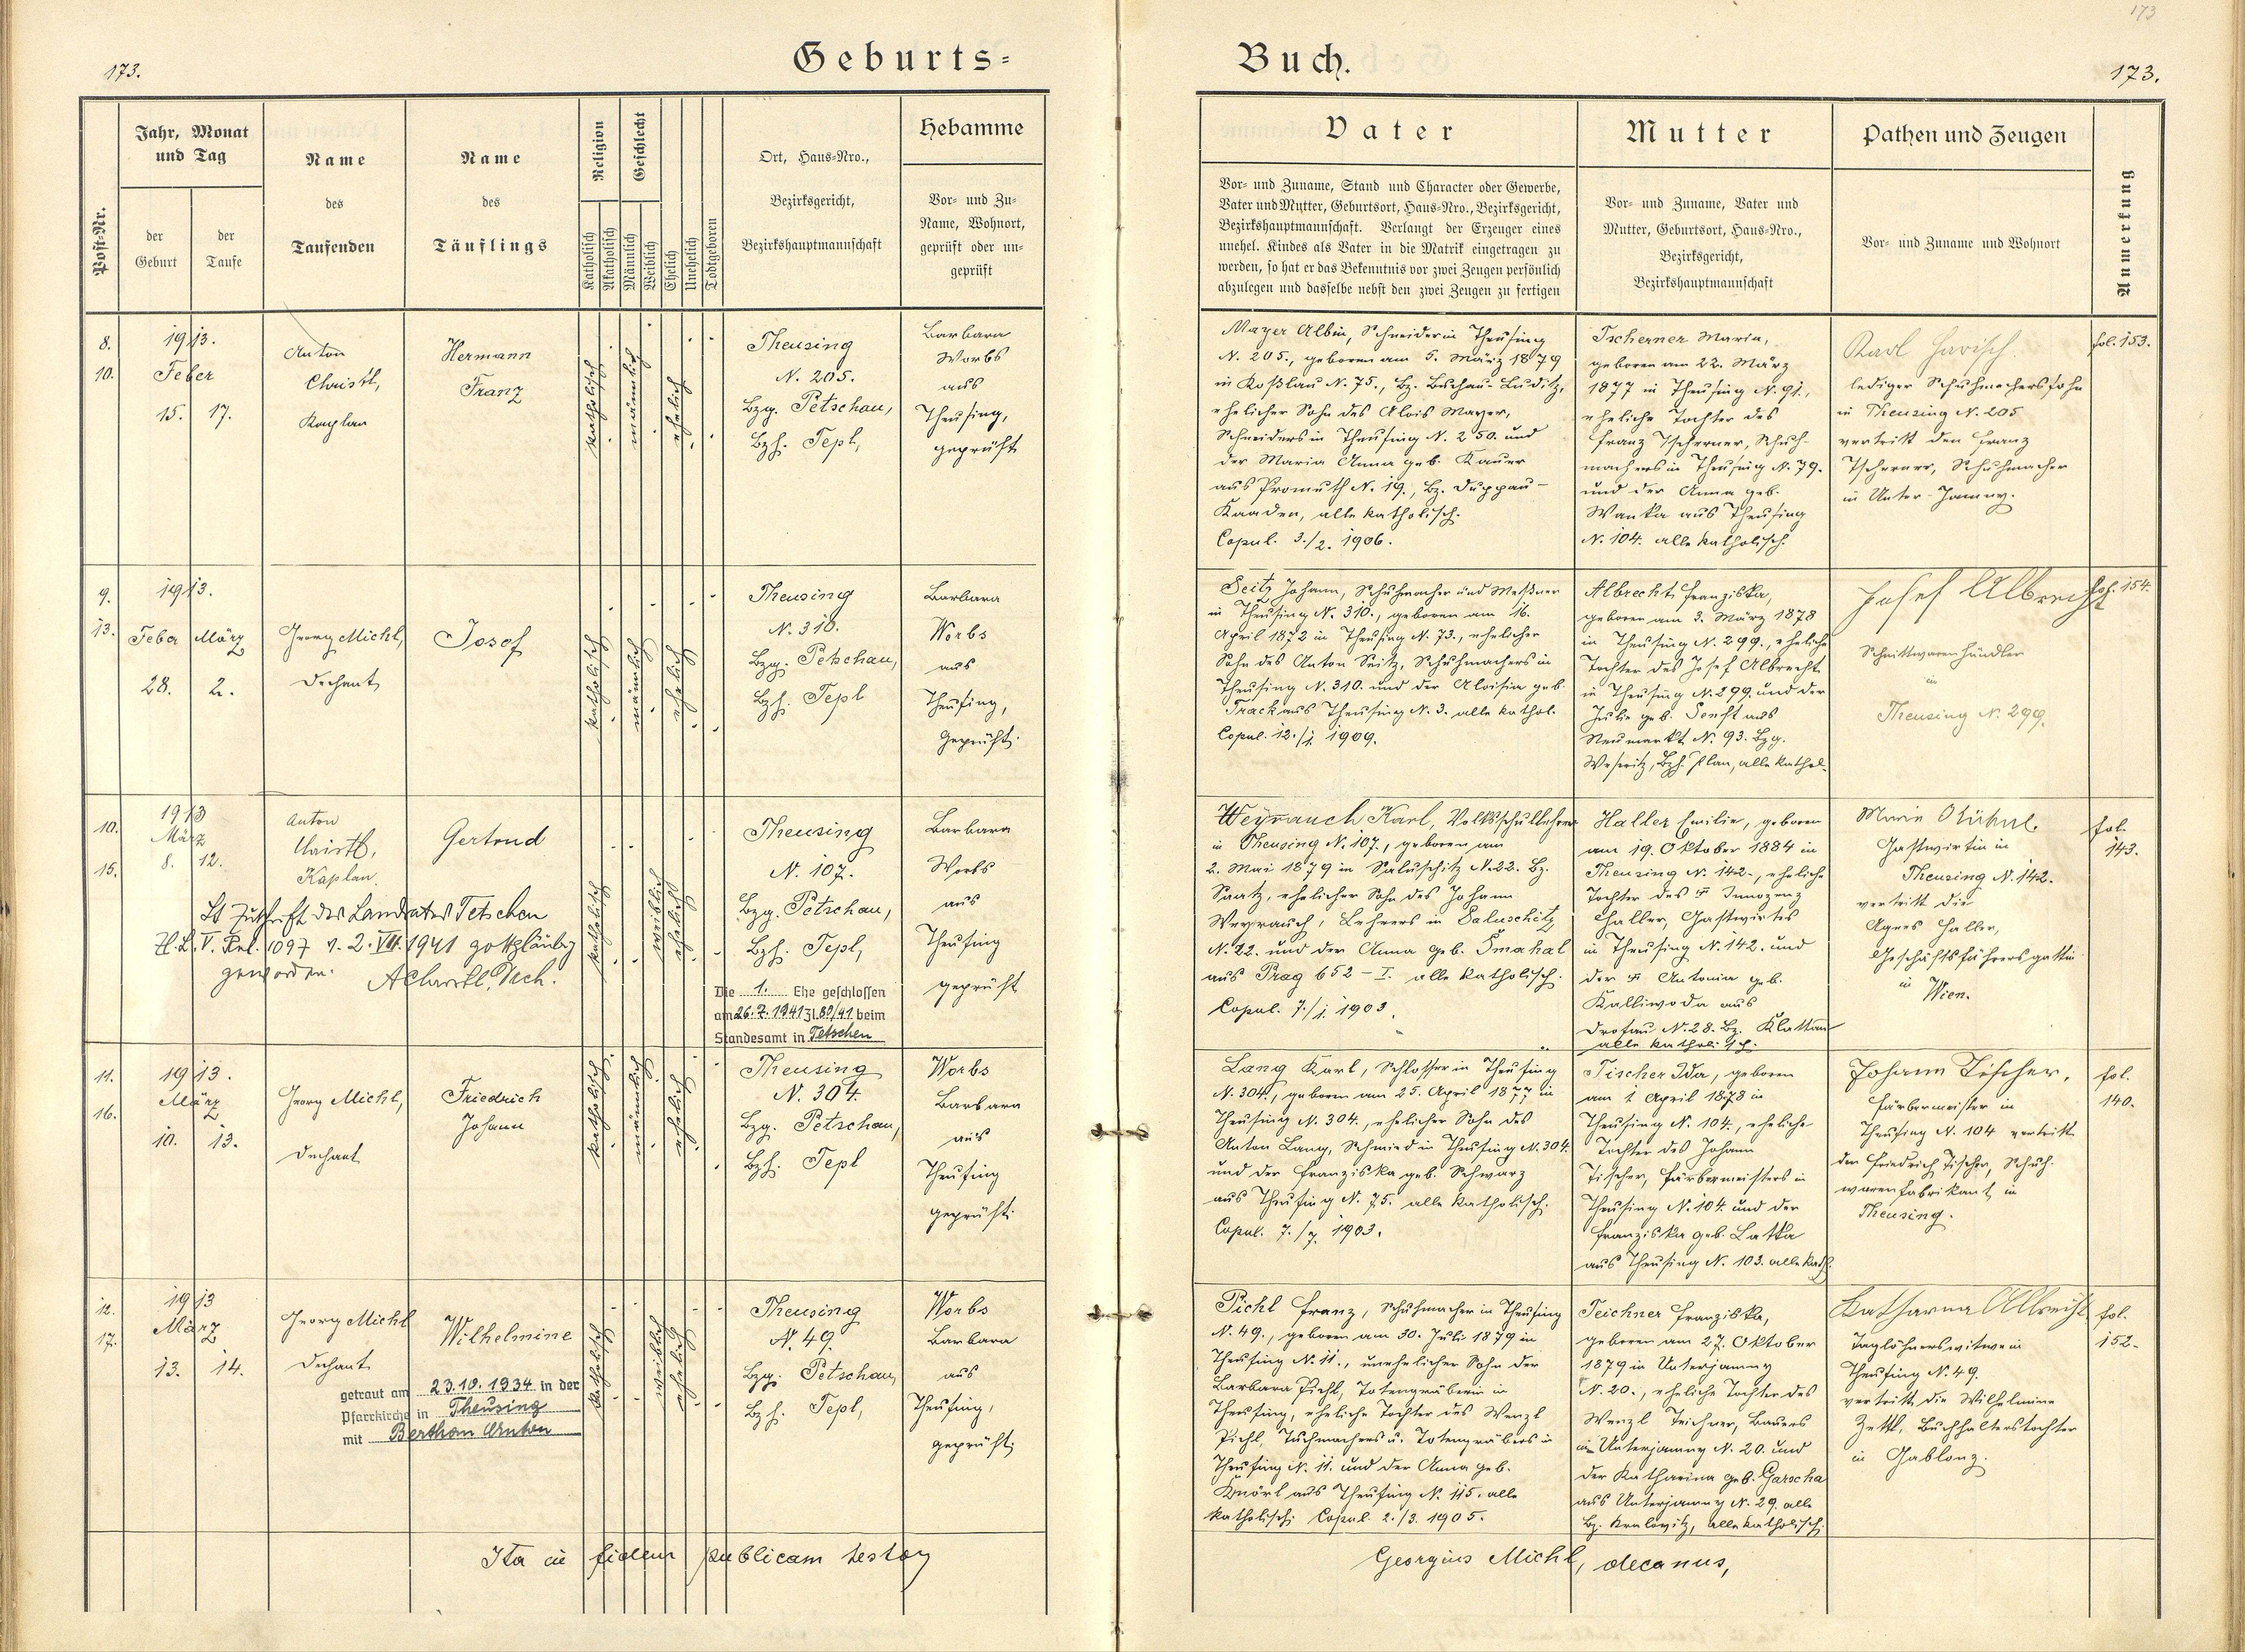 173
173.
Geburts-
Buch.
173.
Post-Nr.
Jahr, Monat
und Tag
der
Geburt
der
Taufe
Name
des
Taufenden
Name
des
Täuflings
Religion
Katholisch
Akatholisch
Geschlecht
Männlich
Weiblich
Ehelich
Unehelich
Todtgeboren
Ort, Haus-Nro.,
Bezirksgericht,
Bezirkshauptmannschaft
Hebamme
Vor- und Zu-
Name, Wohnort,
geprüft oder un-
geprüft
Vater
Vor- und Zuname, Stand und Character oder Gewerbe,
Vater und Mutter, Geburtsort, Haus-Nro., Bezirksgericht,
Bezirkshauptmannschaft. Verlangt der Erzeuger eines
unehel. Kindes als Vater in die Matrik eingetragen zu
werden, so hat er das Bekenntnis vor zwei Zeugen persönlich
abzulegen und dasselbe nebst den zwei Zeugen zu fertigen
Mutter
Vor- und Zuname, Vater und
Mutter, Geburtsort, Haus-Nro.,
Bezirksgericht,
Bezirkshauptmannschaft
Pathen und Zeugen
Vor- und Zuname und Wohnort
Anmerkung
8.
10.
1913.
Feber
15. 17.
Anton
Christl,
Kaplan
Hermann
Franz
katholisch
männlich
ehelich
Theusing
N. 205.
Bzg. Petschau,
Bzh. Tepl,
Barbara
Worbs
aus
Theusing,
geprüft
Mayer Albin, Schneider in Theusing
N. 205., geboren am 5. März 1879
in Koßlau N. 75., Bz. Buchau-Luditz,
ehelicher Sohn des Alois Mayer,
Schneiders in Theusing N. 250. und
der Maria Anna geb. Kauer
aus Promuth N. 19., Bz. Duppau-
Kaaden, alle katholisch.
Copul. 3./2. 1906.
Tscherner Maria,
geboren am 22. März
1877 in Theusing N. 91.,
eheliche Tochter des
Franz Tscherner, Schuh-
machers in Theusing N. 79.
und der Anna geb.
Wanka aus Theusing
N. 104. alle katholisch.
Karl Havisch.
lediger Schuhmacherssohn
in Theusing N. 205
vertritt den Franz
Tscherner, Schuhmacher
in Unter-Jamny.
fol. 153.
9.
13.
1913.
Feber März
28. 2.
Georg Michl,
Dechant
Josef
katholisch
männlich
ehelich
Theusing
N. 310.
Bzg. Petschau,
Bzh. Tepl
Barbara
Worbs
aus
Theusing,
geprüft.
Seitz Johann, Schuhmacher und Meßner
in Theusing N. 310., geboren am 16.
April 1872 in Theusing N. 73., ehelicher
Sohn des Anton Seitz, Schuhmachers in
Theusing N. 310. und der Aloisia geb.
Track aus Theusing N. 3. alle kathol.
Copul. 12./1. 1909.
Albrecht Franziska,
geboren am 3. März 1878
in Theusing N. 299., eheliche
Tochter des Josef Albrecht
in Theusing N. 299. und der
Julie geb. Senft aus
Neumarkt N. 93. Bzg.
Weseritz, Bzh. Plan, alle kathol.
Josef Albrecht
Schnittwarenhändler
in
Theusing N. 299.
fol. 154.
10.
15.
1913
März
8. 12.
Anton
Christl,
Kaplan.
Gertrud
Lt Zuschrift des Landrates Tetschen
1097 v. 2. VII. 1941 gottgläubig
geworden. A Christl, Dech.
katholisch
weiblich
ehelich
Theusing
N. 107.
Bzg. Petschau,
Bzh. Tepl,
Die 1. Ehe geschlossen
am 26.7.1941 Zl. 80/41 beim
Standesamt in Tetschen
Barbara
Worbs
aus
Theusing
geprüft
Weyrauch Karl, Volksschullehrer
in Theusing N. 107., geboren am
2. Mai 1879 in Saluschitz N. 22. Bz.
Saatz, ehelicher Sohn des Johann
Weyrauch, Lehrers in Saluschitz
N. 22. und der Anna geb. Smahal
aus Prag 652 - I. alle katholisch.
Copul. 7./1. 1903.
Haller Emilie, geboren
am 19. Oktober 1884 in
Theusing N. 142., eheliche
Tochter des † Innozenz
Haller, Gastwirtes
in Theusing N. 142. und
der † Antonia geb.
Kalliwoda aus
Drosau N. 28. Bz. Klattau
alle katholisch.
Marie
Gastwirtin in
Theusing N. 142.
vertritt die
Agnes Haller,
Geschäftsführersgattin
in
Wien.
fol.
143.
11.
16.
1913.
März
10. 13.
Georg Michl,
Dechant
Friedrich
Johann
katholisch
männlich
ehelich
Theusing
N. 304.
Bzg. Petschau,
Bzh. Tepl
Worbs
Barbara
aus
Theusing
geprüft.
Lang Karl, Schlosser in Theusing
N. 304., geboren am 25. April 1877 in
Theusing N. 304., ehelicher Sohn des
Anton Lang, Schmied in Theusing N. 304.
und der Franziska geb. Schwarz
aus Theusing N. 75. alle katholisch.
Copul. 7./7. 1903.
Tischer Ida, geboren
am 1 April 1878 in
Theusing N. 104., eheliche
Tochter des Johann
Tischer, Färbermeisters in
Theusing N. 104. und der
Franziska geb. Latka
aus Theusing N. 103. alle kath.
Johann Tischer,
Färbermeister in
Theusing N. 104 vertritt
den Friedrich Tischer, Schuh-
warenfabrikant in
Theusing.
fol.
140.
12.
17.
1913
März
13. 14.
Georg Michl
Dechant
Wilhelmine
getraut am 23.10.1934 in der
Pfarrkirche in Theusing
mit
katholisch
weiblich
ehelich
Theusing
N. 49.
Bzg. Petschau,
Bzh. Tepl,
Worbs
Barbara
aus
Theusing,
geprüft.
Pichl Franz, Schuhmacher in Theusing
N. 49., geboren am 30. Juli 1879 in
Theusing N. 11., unehelicher Sohn der
Barbara Pichl, Totengräberin in
Theusing, eheliche Tochter des Wenzl
Pichl, Tuchmachers u. Totengräbers in
Theusing N. 11. und der Anna geb.
Knörl aus Theusing N. 115. alle
katholisch. Copul. 2./3. 1905.
Teichner Franziska,
geboren am 27. Oktober
1879 in Unterjamny
N. 20., eheliche Tochter des
Wenzl Teichner, Bauers
in Unterjamny N. 20. und
der Katharina geb. Garscha
aus Unterjamny N. 29. alle
Bz. Kralovitz, alle katholisch.
Katharina Albrecht
Taglöhnerswitwe in
Theusing N. 49.
vertritt die Wilhelmine
Zettl, Buchhalterstochter
in Gablonz.
fol.
152.
Ita in fidem publicam testor
Georgius Michl, decanus,